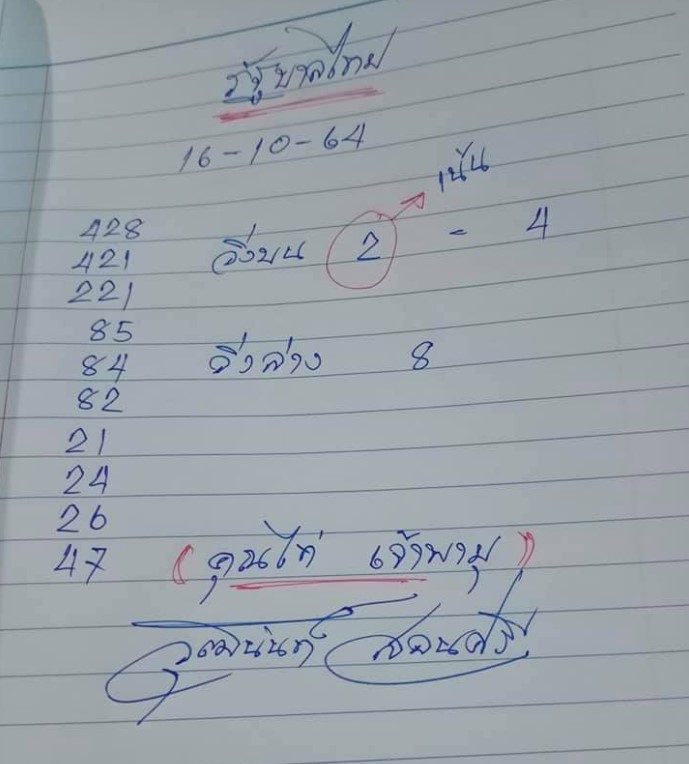 รัฐบาลไทย
16-10-64
เน้น
428
421 วิ่งบน 2 - 4
221
85
84 วิ่งล่าง 8
82
21
24
26
47 (คุณไก่ เจ้าพายุ)
วุฒินันท์ สอนศรี